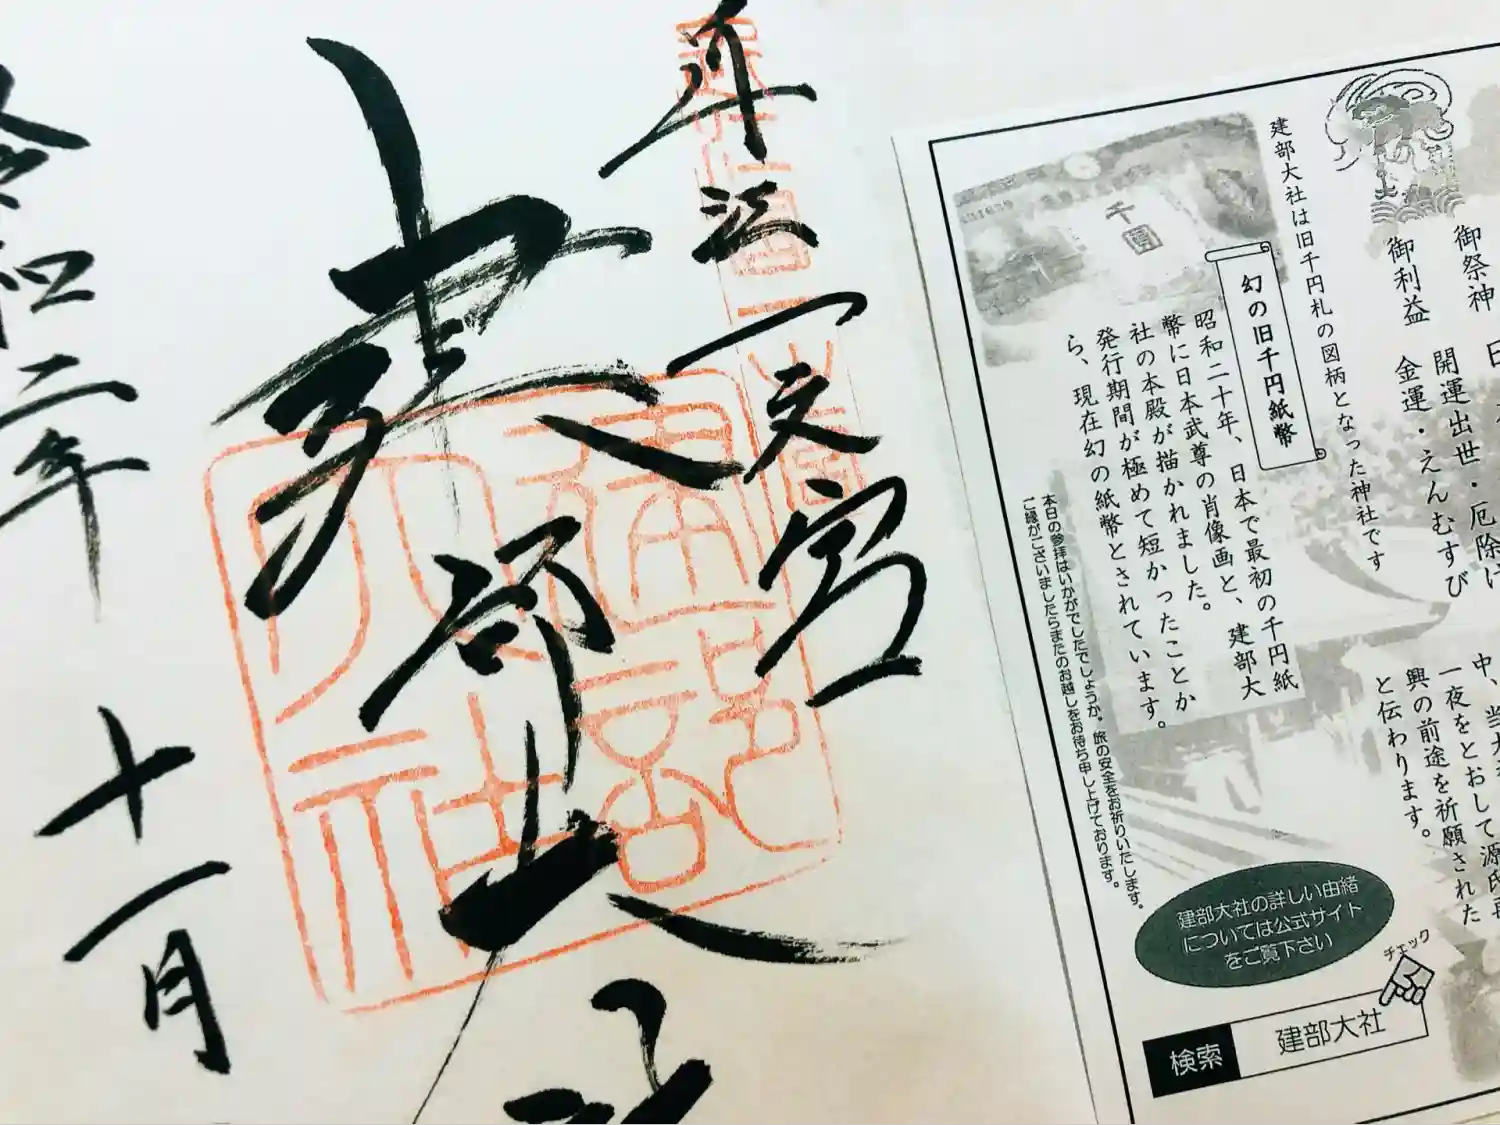 近江一之宮
建部大社
令和二年
十一月
御祭神 日
御利益 開運出世・厄除け
金運・えんむすび
建部大社は旧千円札の図柄となった神社です
千圓
幻の旧千円紙幣
昭和二十年、日本で最初の千円紙
幣に日本武尊の肖像画と、建部大
社の本殿が描かれました。
発行期間が極めて短かったことか
ら、現在幻の紙幣とされています。
中、当大
一夜をとおして源氏再
興の前途を祈願された
と伝わります。
本日の参拝はいかがでしたでしょうか。旅の安全をお祈りいたします。
ご縁がございましたらまたのお越しをお待ち申し上げております。
建部大社の詳しい由緒
については公式サイト
をご覧下さい
チェック
検索 建部大社